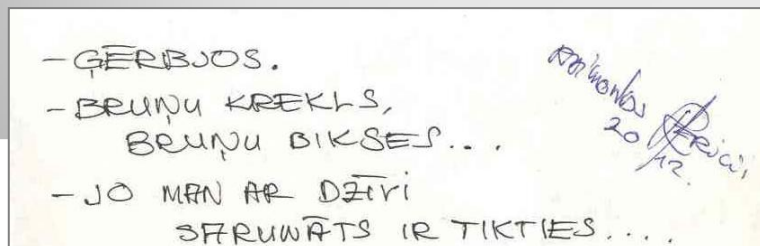 - ĢĒRBJOS.
- BRUŅU KREKLS,
BRUŅU BIKSES...
- JO MAN AR DZĪVI
SARUNĀTS IR TIKTIES....
20/12.